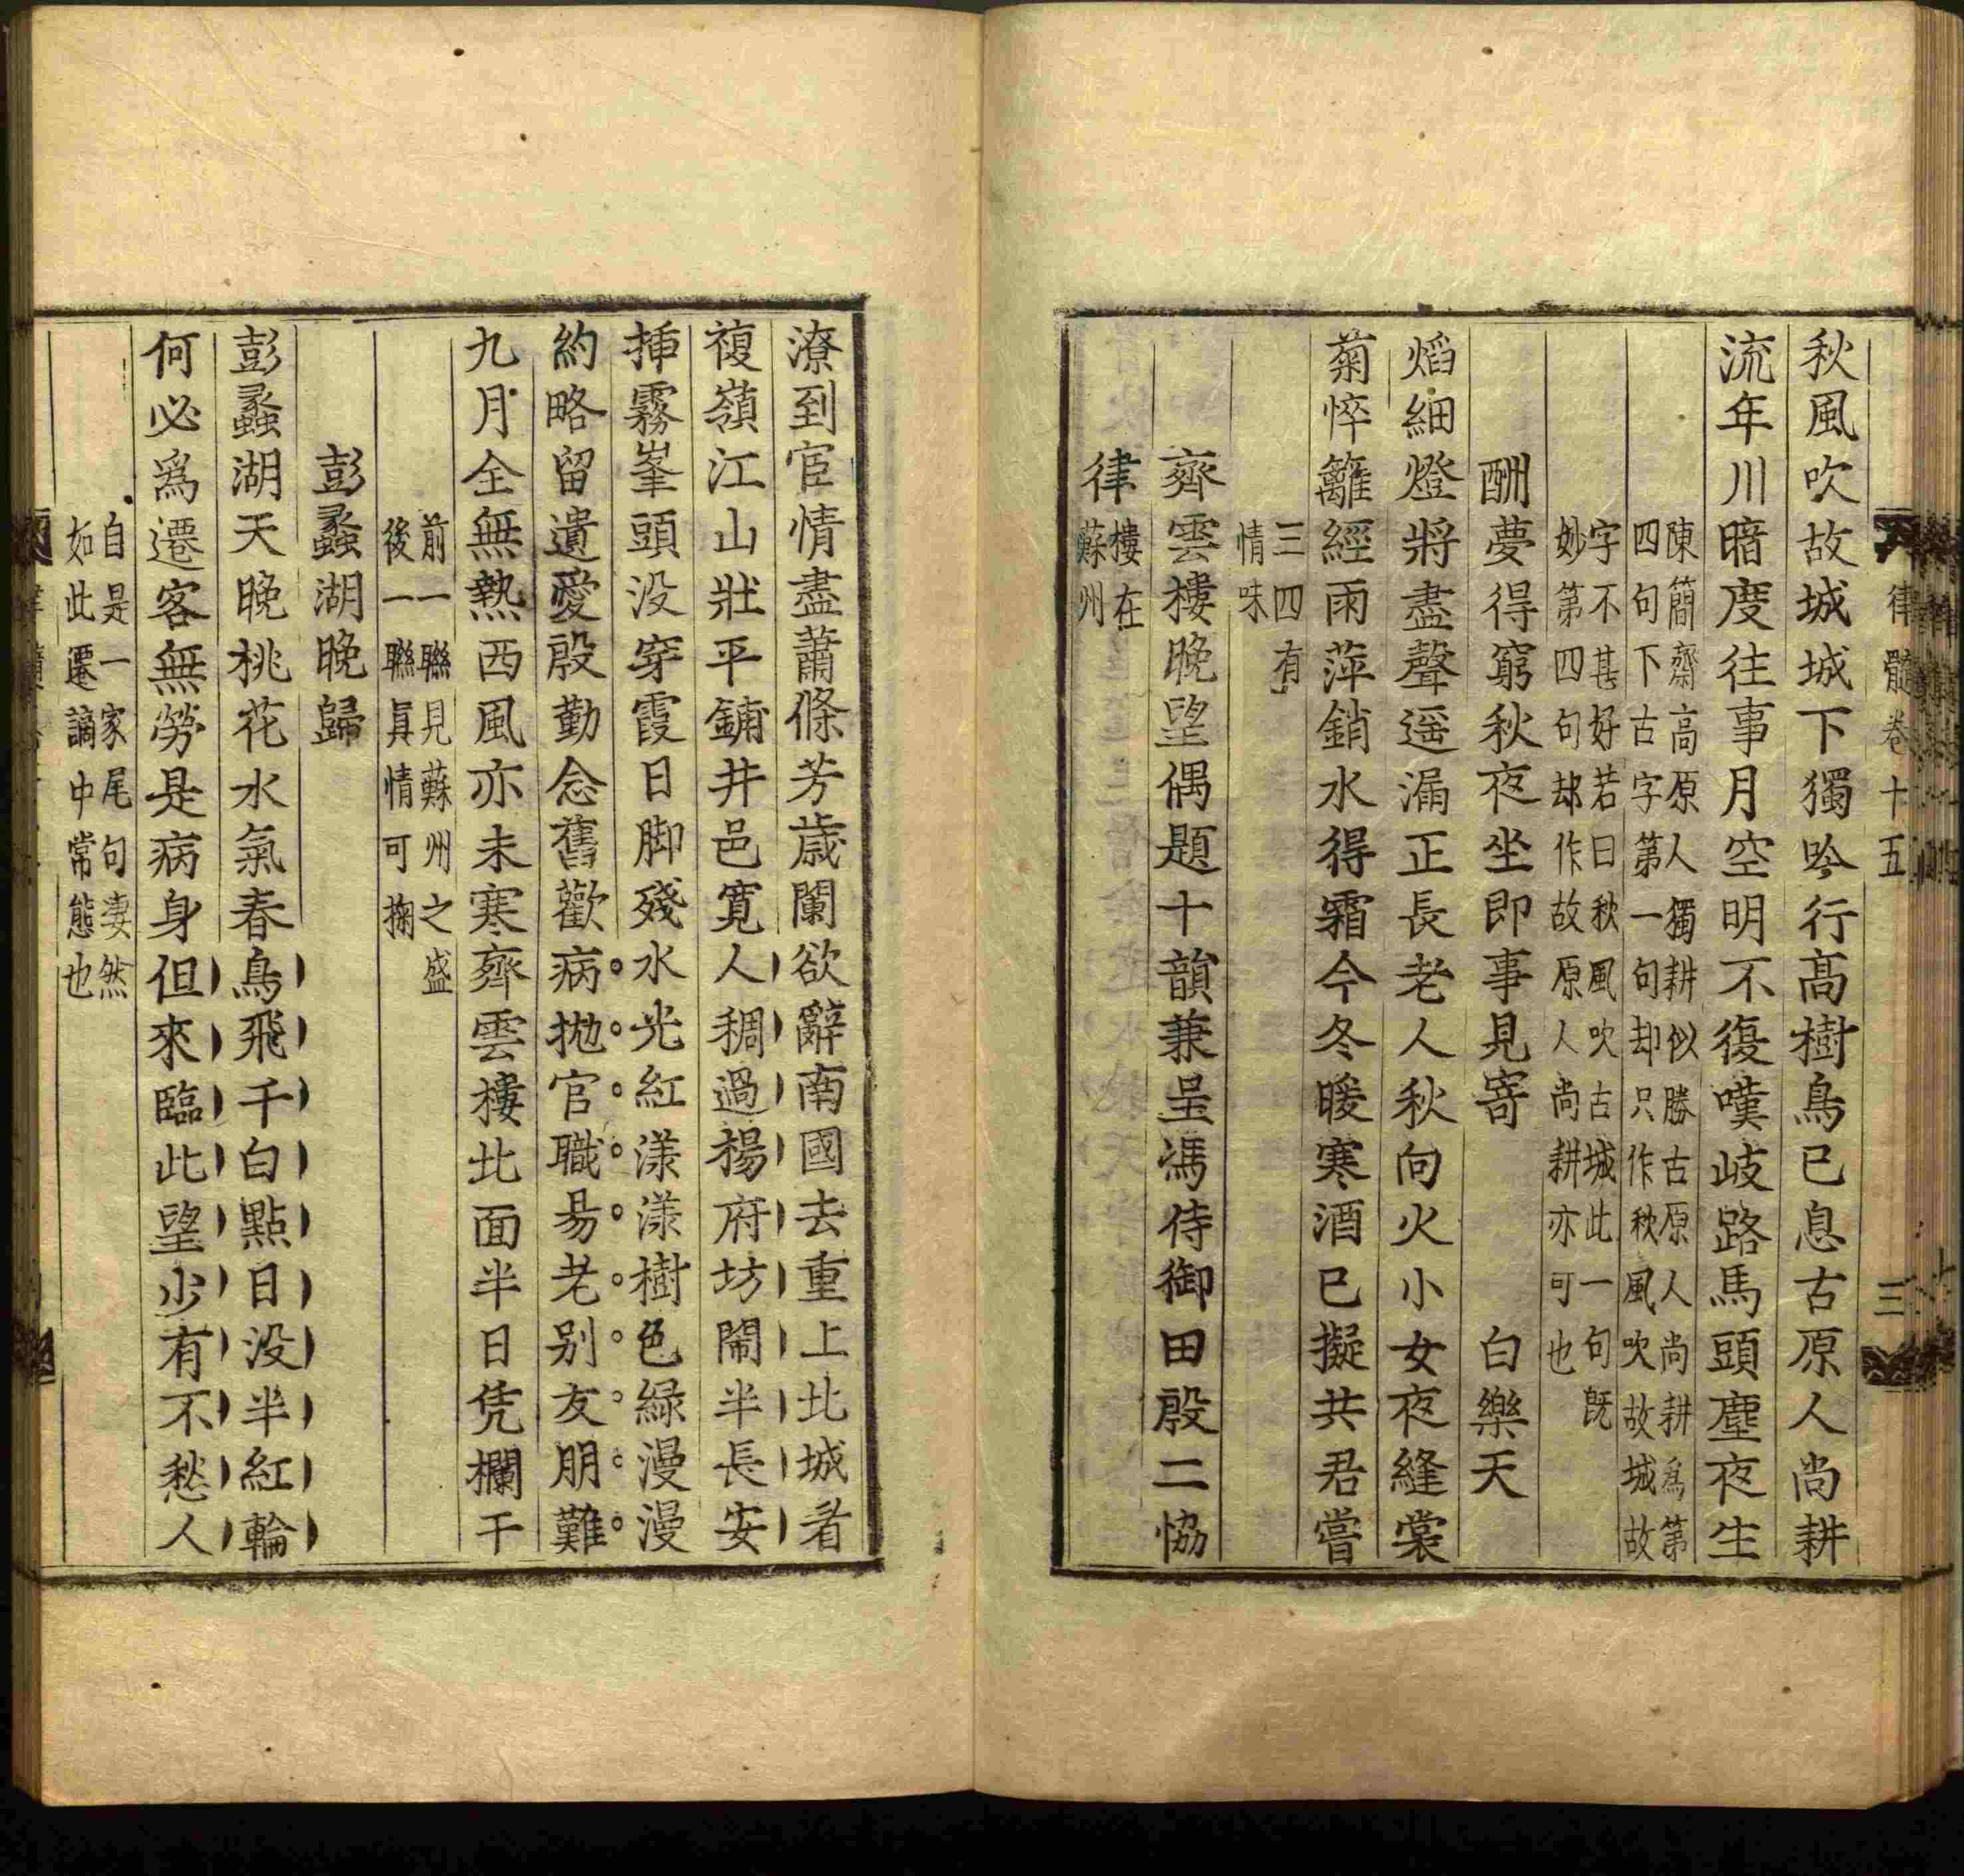 律髓卷十五
三
秋風吹故城城下獨吟行髙樹鳥已息古原人尚耕
流年川暗度往事月空明不復嘆岐路馬頭塵夜生
陳簡齋高原人獨耕似勝古原人尚耕爲第
四句下古字第一句却只作秋風吹故城故
字不甚好若曰秋風吹古城此一句旣
妙第四句却作故原人尚耕亦可也
酬夢得窮秋夜坐即事見寄　白樂天
焰細燈將盡聲遥漏正長老人秋向火小女夜縫裳
菊悴籬經雨萍銷水得霜今冬暖寒酒已擬共君嘗
三四有
情味
齊雲樓晚望偶題十韻兼呈馮侍御田殷二恊
律
樓在
蘇州
潦到宦情盡蕭條芳歳闌欲辭南國去重上北城㸔
複嶺江山壯平鋪井邑寛人稠過楊府坊閙半長安
揷霧峯頭没穿霞日脚殘水光紅漾漾樹色緑漫漫
約略留遺愛殷勤念舊歡病抛官職易老别友朋難
九月全無熱西風亦未寒齊雲樓北面半日凭欄干
前一聯見蘇州之盛
後一聯眞情可掬
彭蠡湖晚歸
彭蠡湖天晚桃花水氣春鳥飛千白點日没半紅輪
何必爲遷客無勞是病身但來臨此望少有不愁人
自是一家尾句凄然
如此遷謫中常態也